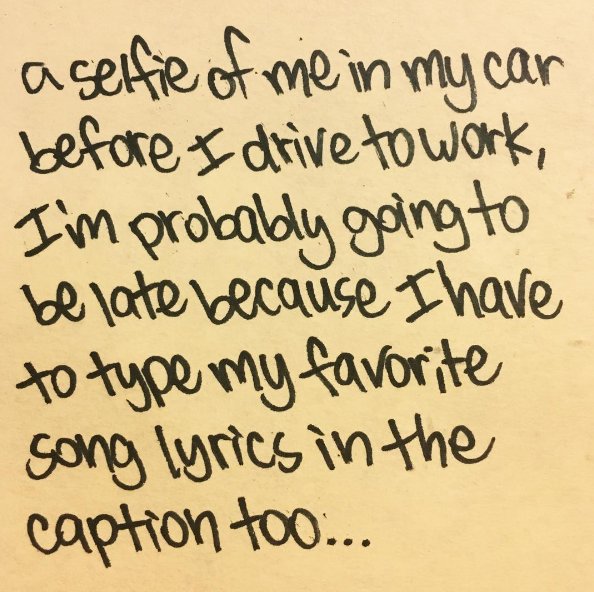 a selfie of me in my car
before I drive to work,
I'm probably going to
be late because I have
to type my favorite
song lyrics in the
caption too...